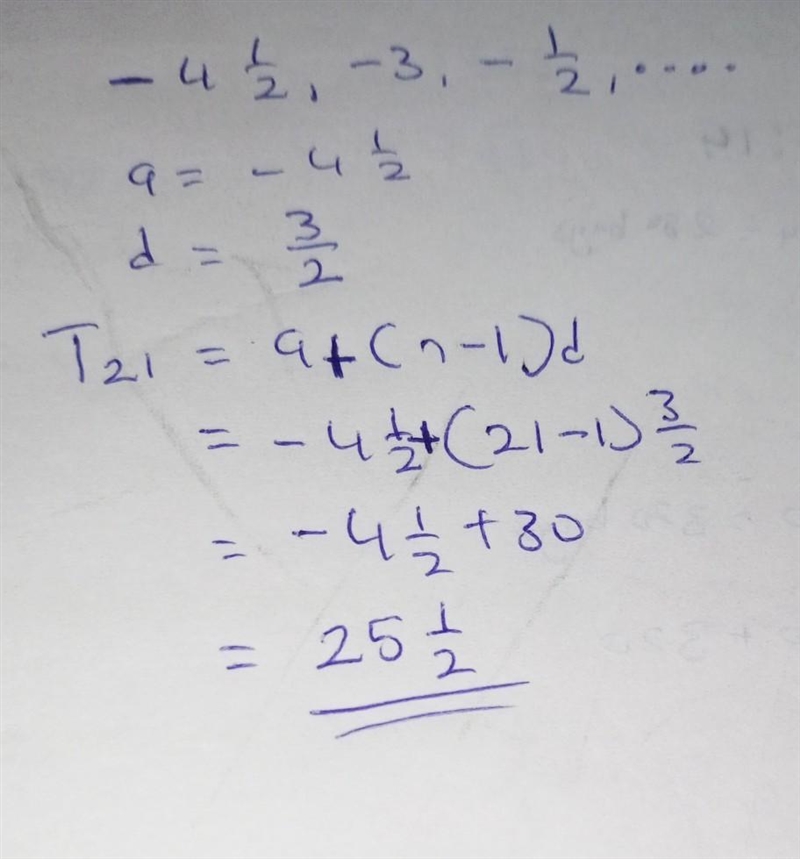 - 4 1/2, -3, - 1/2, ....
a = - 4 1/2
d = 3/2
T21 = a+(n-1)d
= - 4 1/2 + (21-1) 3/2
= - 4 1/2 + 30
= 25 1/2